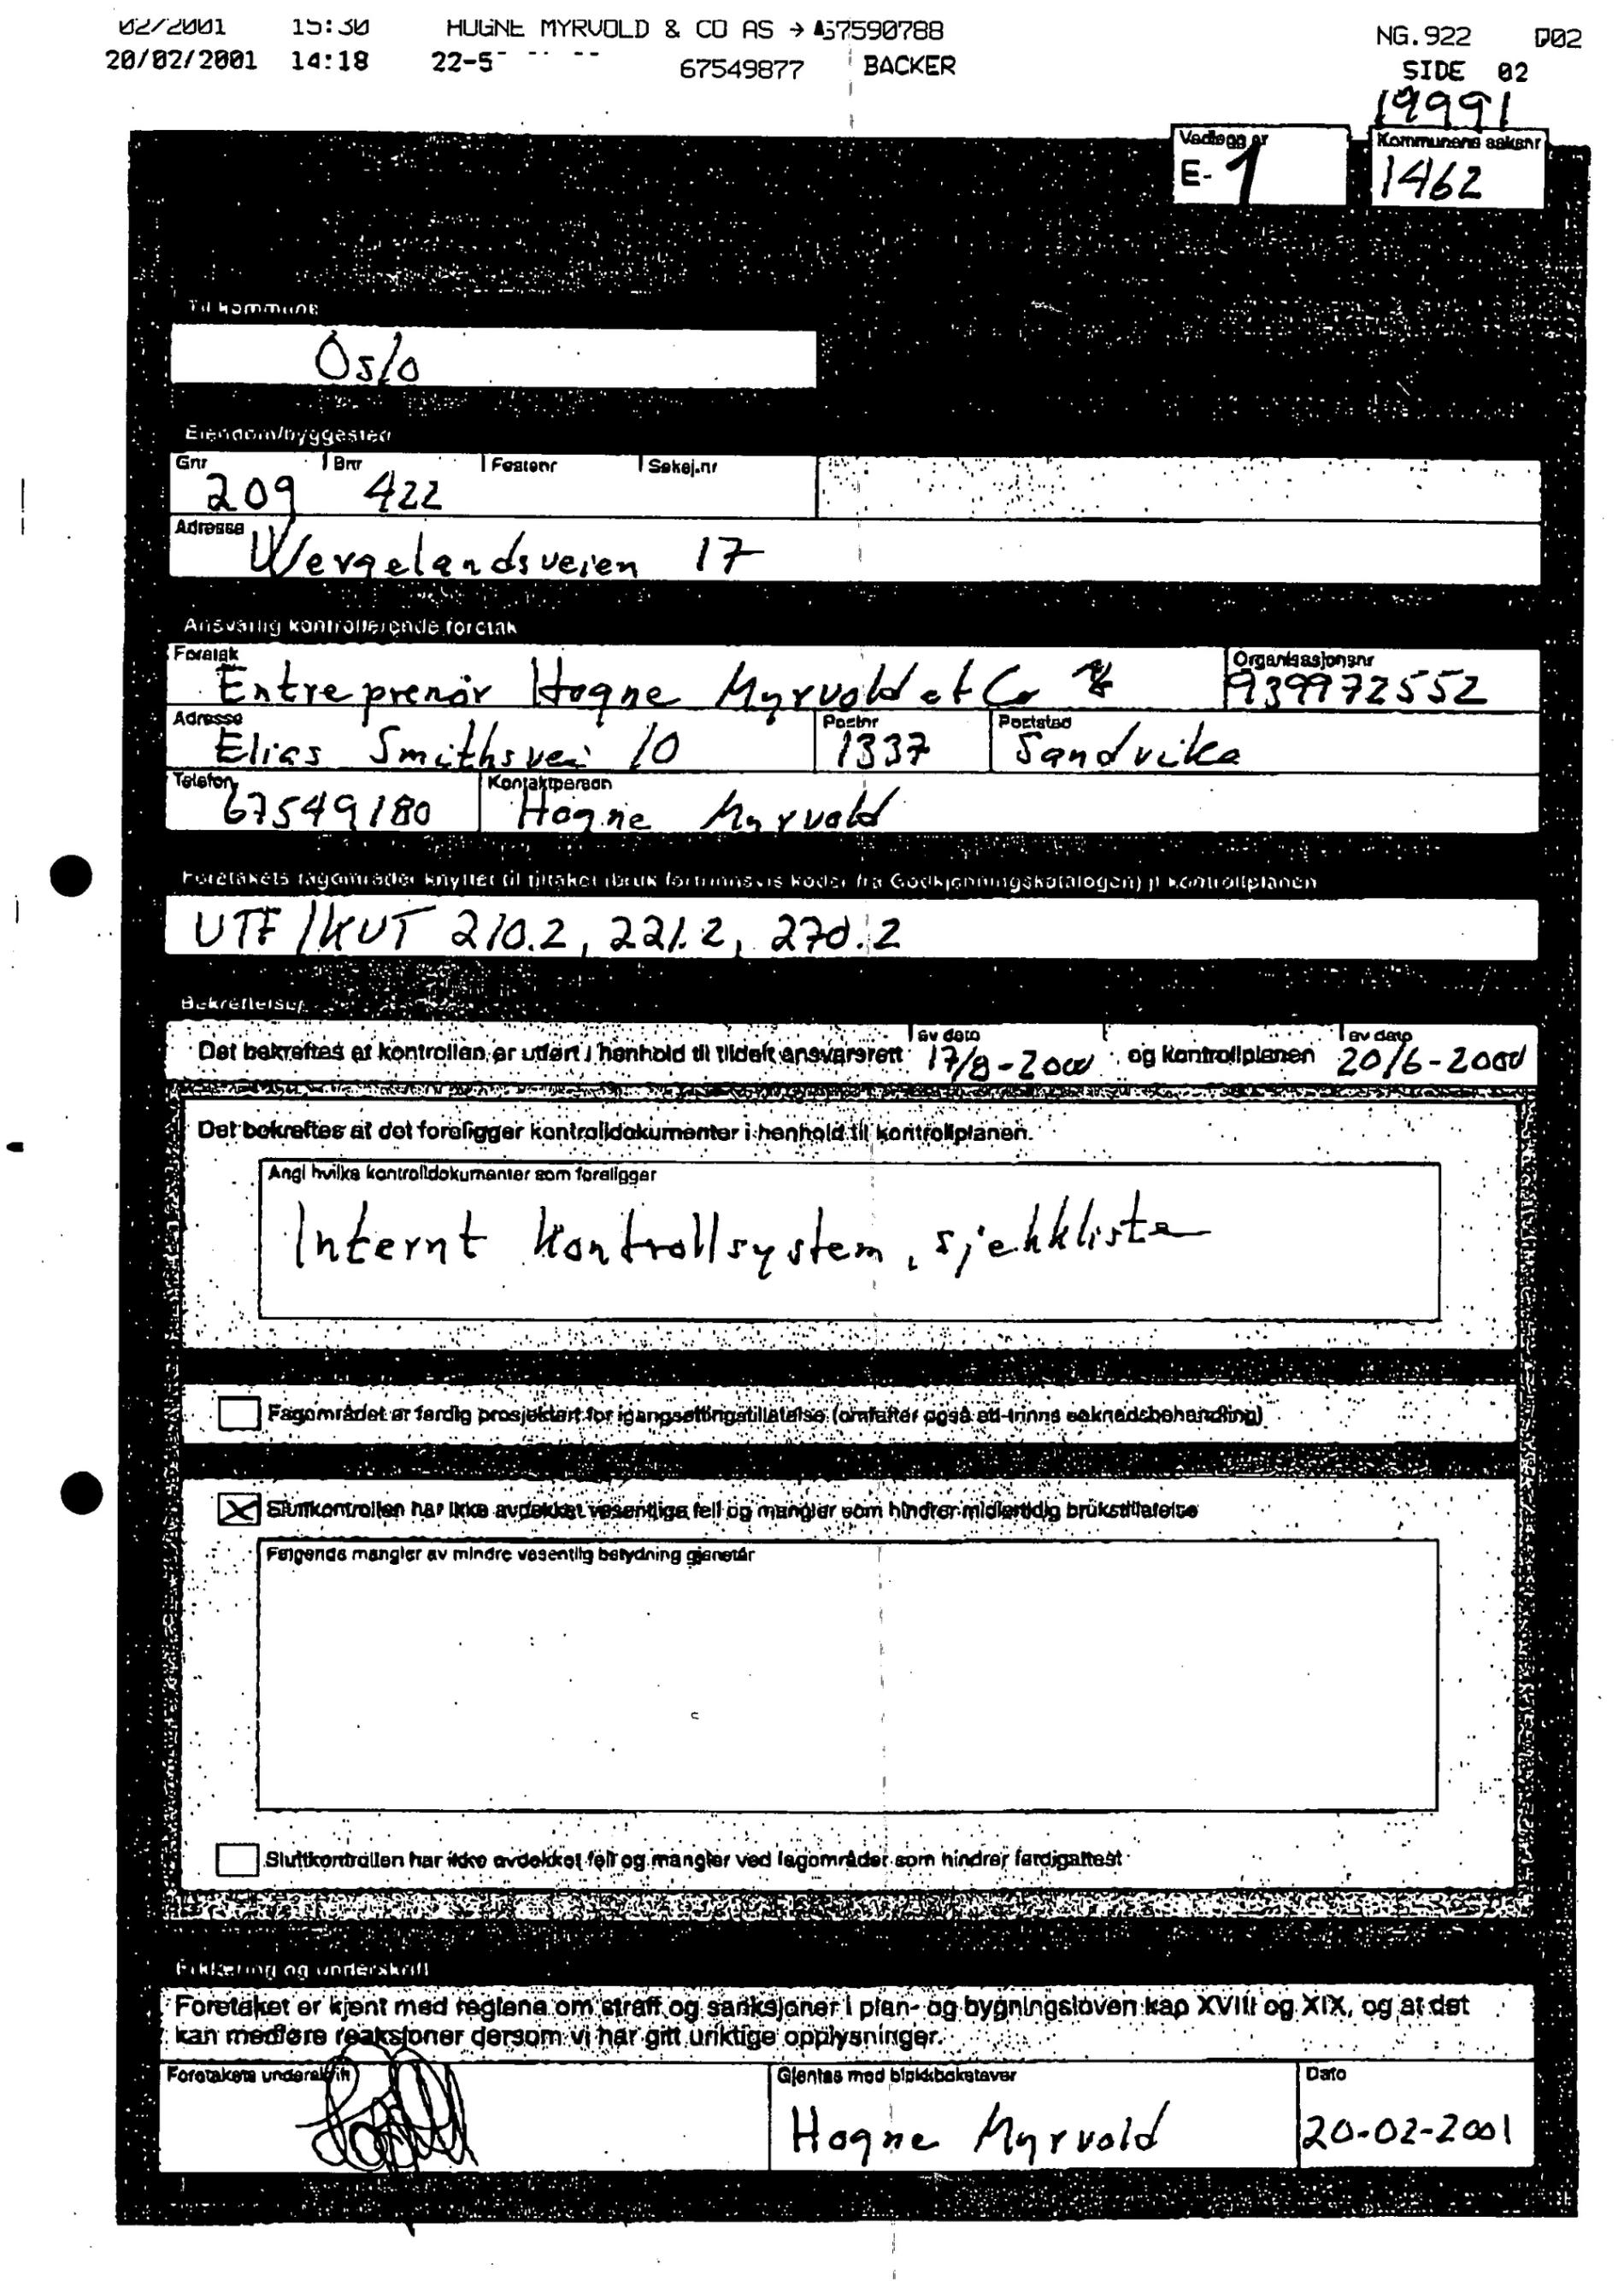 02/2001 15:30 HOGNE MYRVOLD & CO AS → 67590788 NG.922 D02
20/02/2001 14:18 22-5 67549877 BACKER SIDE 02
19991
Vedlegg nr
E- 1
Kommunens saksnr
1462
Til kommune
Oslo
Eiendom/byggested
Gnr Bnr Festenr Seksj.nr
209 422
Adresse
Wergelandsveien 17
Ansvarlig kontrollerende foretak
Foretak Organisasjonsnr
Entreprenør Hogne Myrvold et Co 939972552
Adresse Postnr Poststed
Elias Smithsvei 10 1337 Sandvika
Telefon Kontaktperson
67549180 Hogne Myrvold
Foretakets fagområder knyttet til tiltaket (bruk fortrinnsvis koder fra Godkjenningskatalogen) jf kontrollplanen
UTF / KUT 210.2, 221.2, 270.2
Bekreftelser
av dato av dato
Det bekreftes at kontrollen er utført i henhold til tildelt ansvarsrett 17/8-2000 og kontrollplanen 20/6-2000
Det bekreftes at det foreligger kontrolldokumenter i henhold til kontrollplanen.
Angi hvilke kontrolldokumenter som foreligger
Internt kontrollsystem, sjekkliste
Fagområdet er ferdig prosjektert for igangsettingstillatelse (omfatter også ett-trinns søknadsbehandling)
Sluttkontrollen har ikke avdekket vesentlige feil og mangler som hindrer midlertidig brukstillatelse
Følgende mangler av mindre vesentlig betydning gjenstår
Sluttkontrollen har ikke avdekket feil og mangler ved fagområder som hindrer ferdigattest
Erklæring og underskrift
Foretaket er kjent med reglene om straff og sanksjoner i plan- og bygningsloven kap XVIII og XIX, og at det
kan medføre reaksjoner dersom vi har gitt uriktige opplysninger.
Foretakets underskrift Gjentas med blokkbokstaver Dato
Hogne Myrvold 20-02-2001